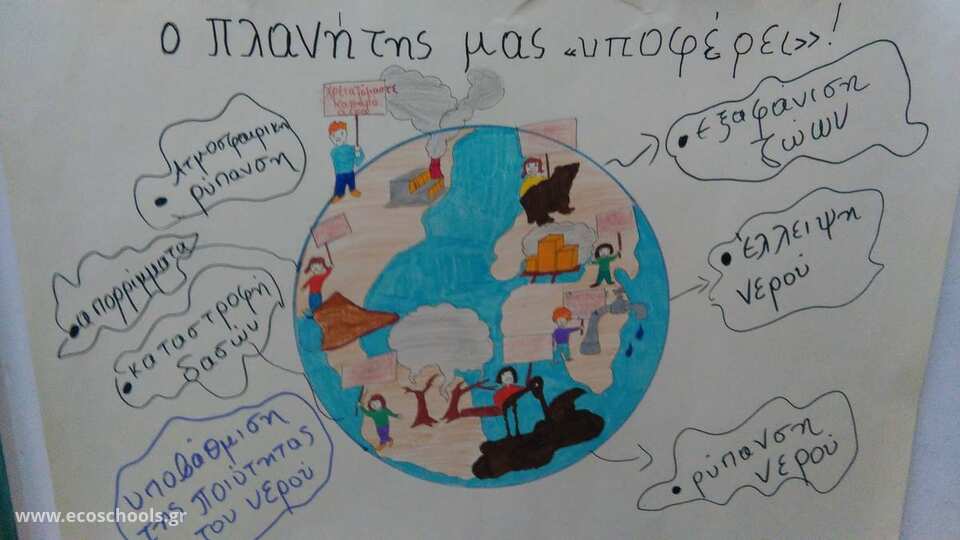 Ο Πλανήτης μας «υποφέρει»!
Χρειαζόμαστε
καθαρό
αέρα
• Ατμοσφαιρική
ρύπανση
• απορρίμματα
• καταστροφή
δασών
υποβάθμιση
της ποιότητας
του νερού
• εξαφάνιση
ζώων
• έλλειψη
νερού
• ρύπανση
νερού
www.ecoschools.gr